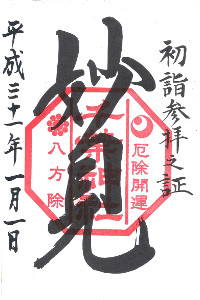 初詣参拝之証
厄除開運
妙見
八方除
平成三十一年一月一日